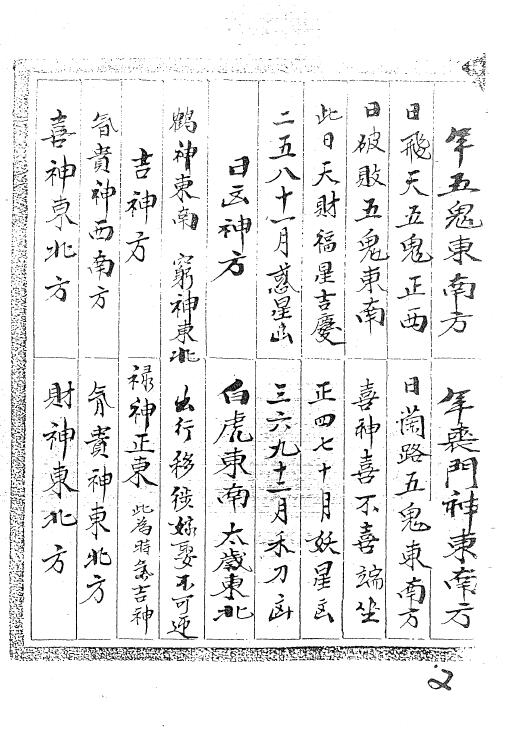 年五鬼東南方
年喪門神東南方
日飛天五鬼正西
日蘭路五鬼東南方
日破敗五鬼東南
喜神喜不喜端坐
此日天財福星吉慶
正四七十月妖星凶
二五八十一月惑星凶
三六九十二月禾刀凶
日凶神方
白虎東南太歲東北
鶴神東南 窮神東北
出行移徙嫁娶不可迎
吉神方
祿神正東 此為時家吉神
貴神西南方
貴神東北方
喜神東北方
財神東北方
2